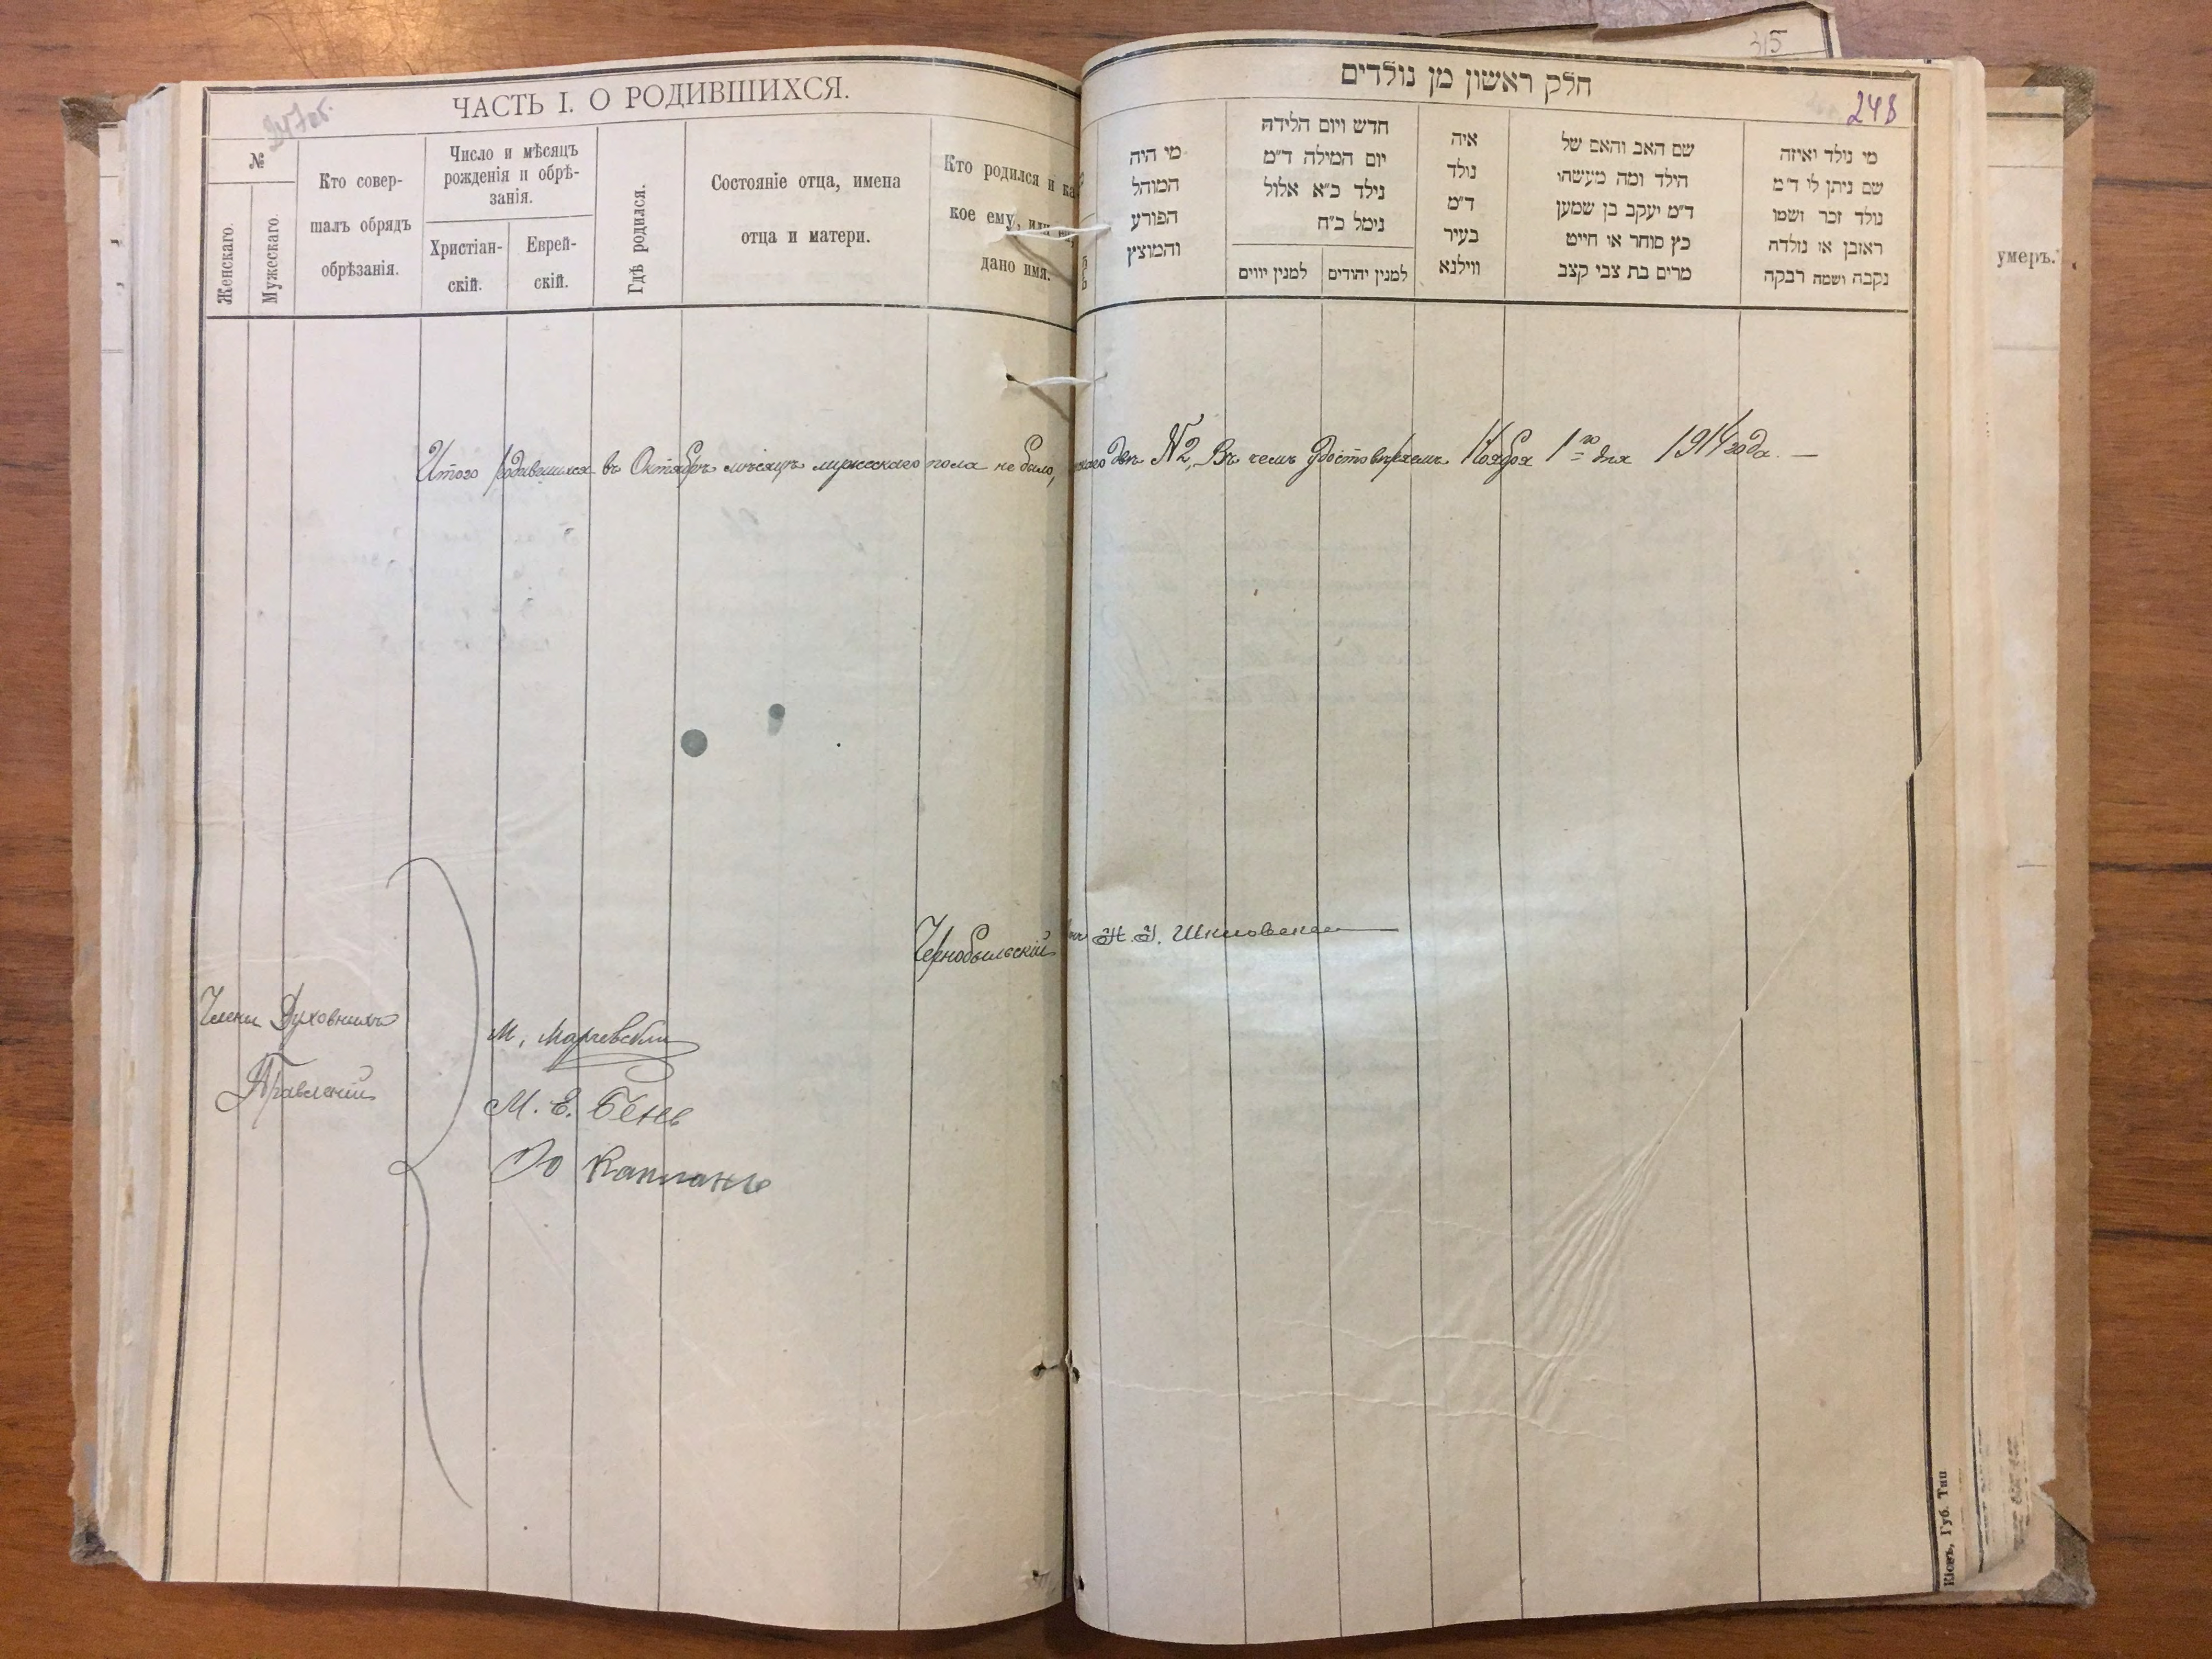 247об.
ЧАСТЬ I. О РОДИВШИХСЯ.
№
Женскаго.
Мужескаго.
Кто совер-
шалъ обрядъ
обрѣзанія.
Число и мѣсяцъ
рожденія и обрѣ-
занія.
Христіан-
скій.
Еврей-
скій.
Гдѣ родился.
Состояніе отца, имена
отца и матери.
Кто родился и ка
кое ему, или
дано имя.
315
248
חלק ראשון מן נולדים
מי נולד ואיזה
שם ניתן לו ד״מ
נולד זכר ושמו
ראובן או נולדה
נקבה ושמה רבקה
שם האב והאם של
הילד ומה מעשהו
ד״מ יעקב בן שמעון
כץ סוחר או חייט
מרים בת צבי קצב
איה
נולד
ד״מ
בעיר
ווילנא
חדש ויום הלידה
יום המילה ד״מ
נילד כ״א אלול
נימל כ״ח
למנין יהודים
למנין יווים
מי היה
המוהל
הפורע
והמוצץ
умеръ.
Итого родившихся въ Октябрѣ мѣсяцѣ мужескаго пола не было, двѣ №2, Въ чемъ удостовѣряемъ Ноября 1го дня 1914 года. —
Чернобыльскій Шкловскій
Члены Духовныхъ
Правленій
М. Е. Бень
Ю Капланъ
Кіевъ, Губ. Тип